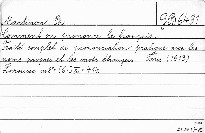 Martinon Ph. GB 6491
Comment on prononce le français.
Traité complet de prononciation pratique avec les
noms propres et les mots étrangers. Paris (1913)
Larousse